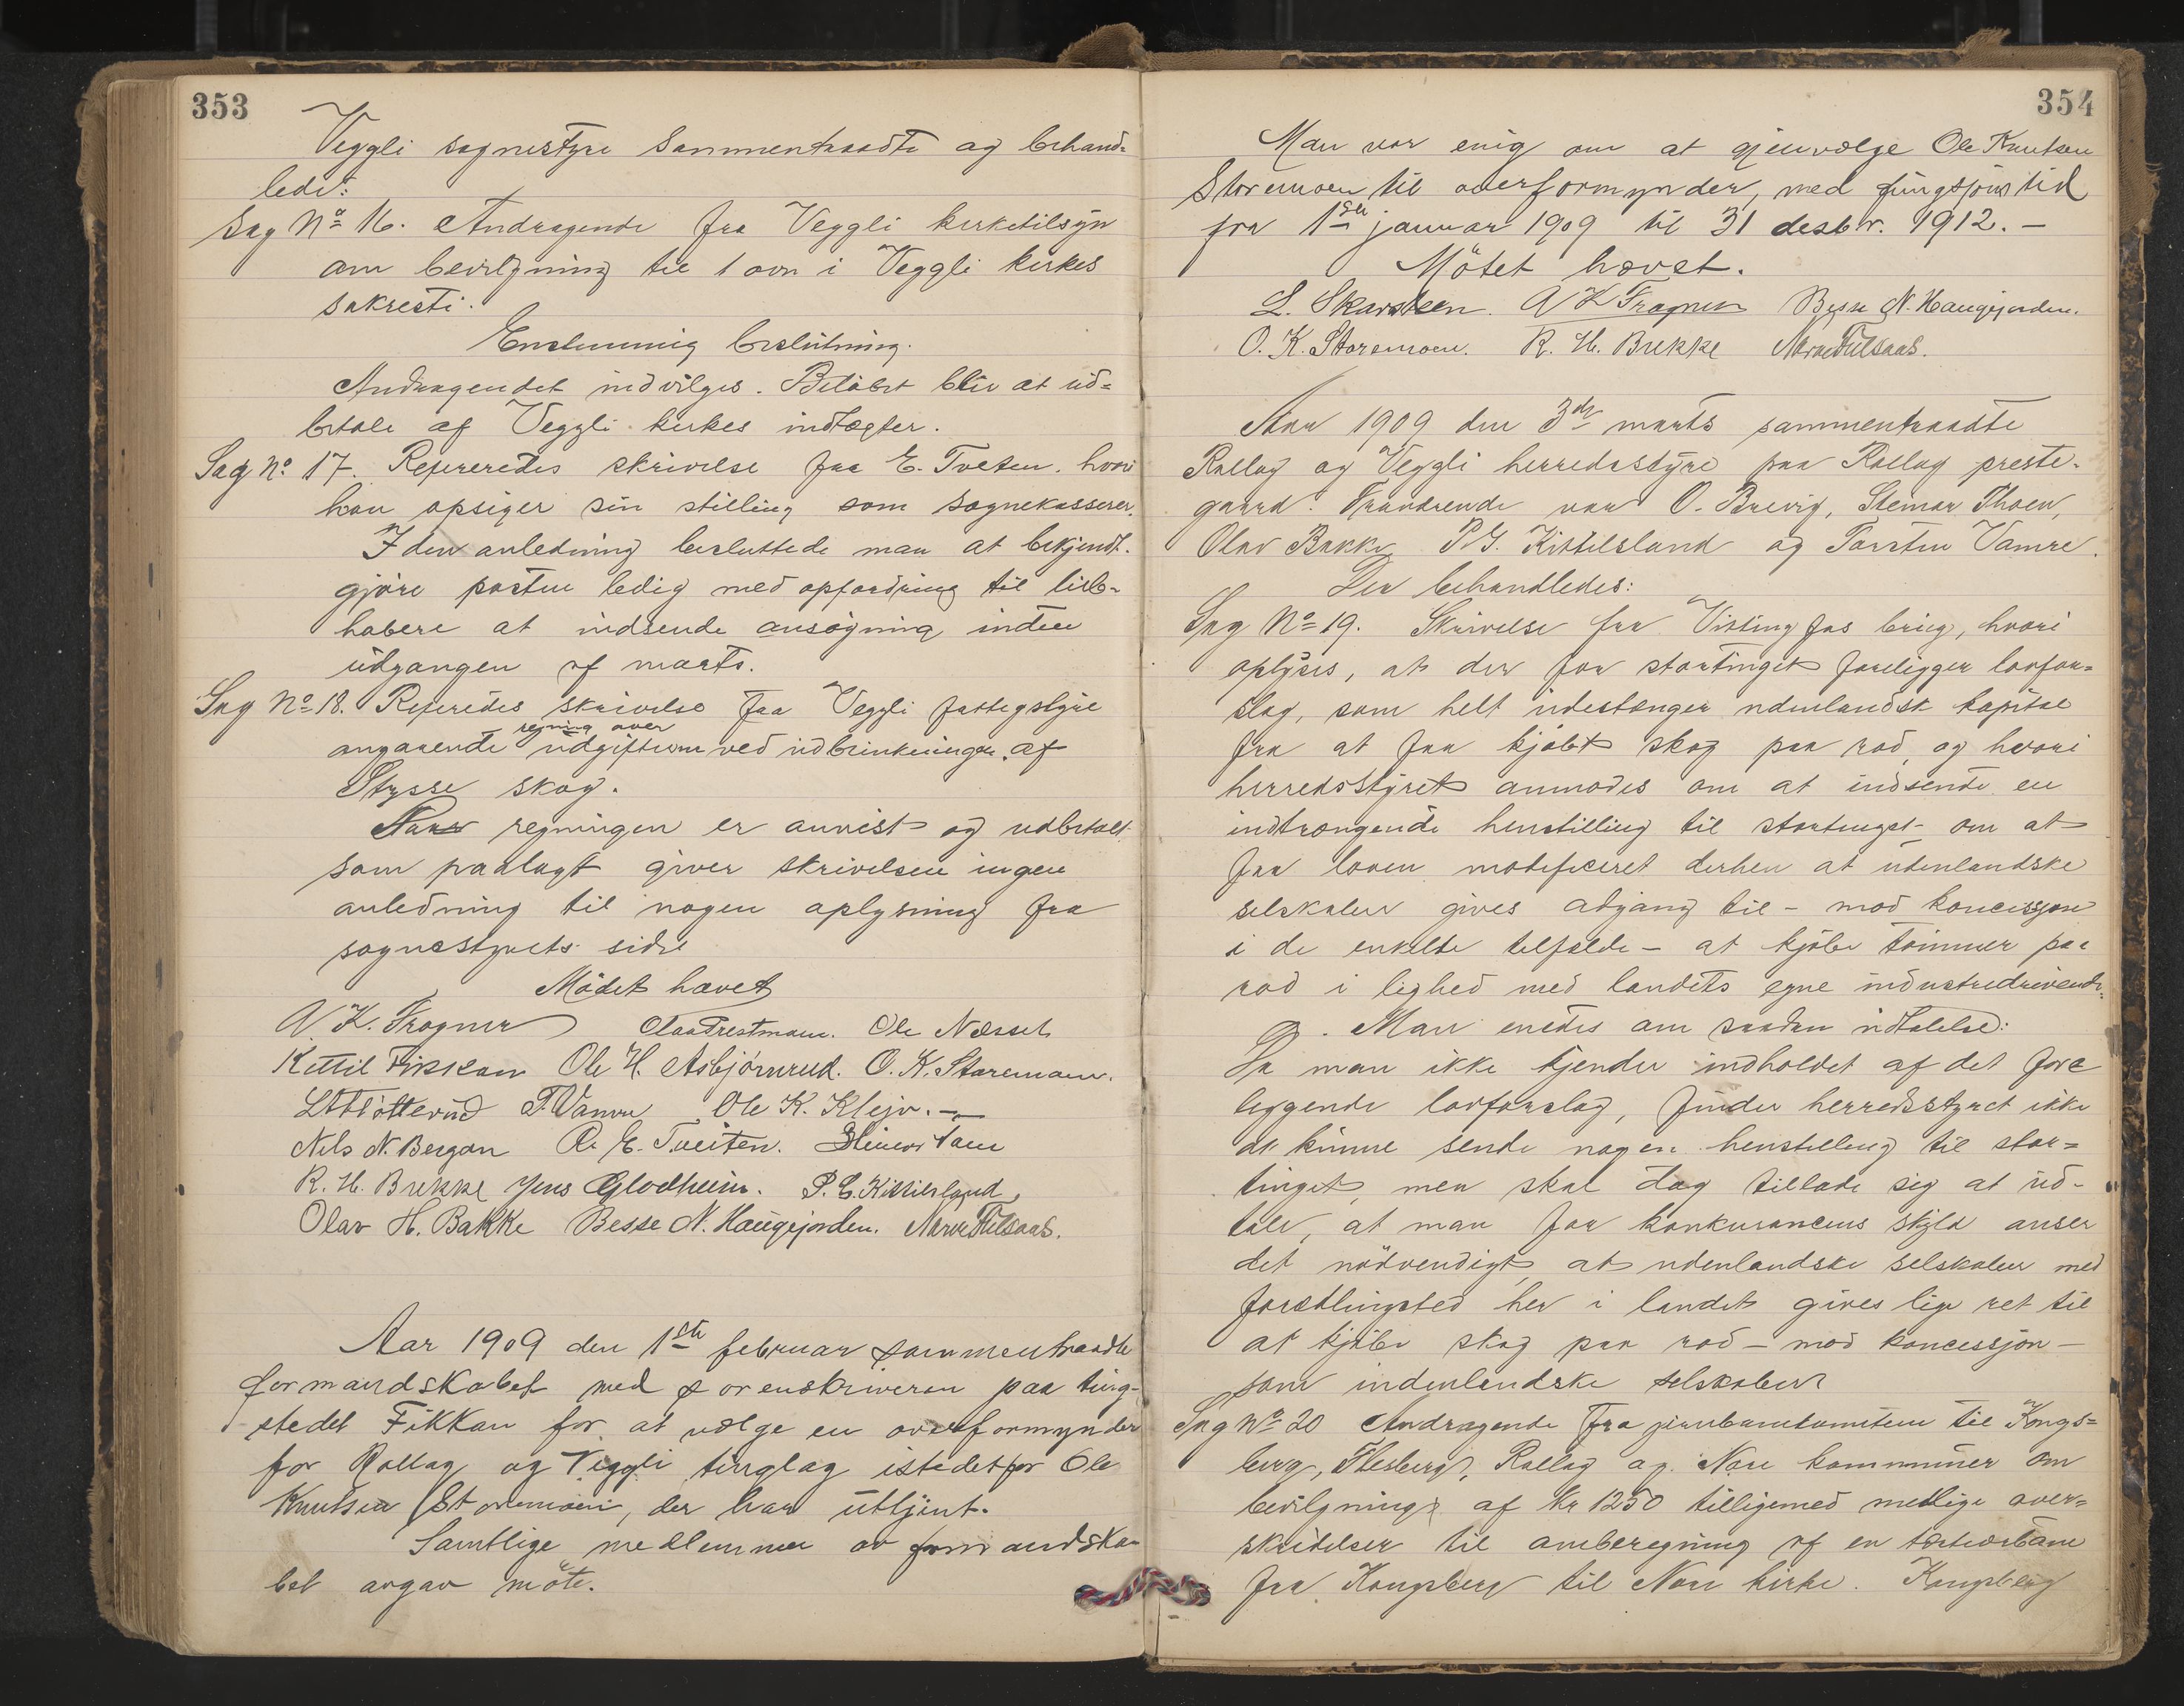 353
Veggli sognestyre sammentraadte og behand=
lede:
Sag No 16. Andragende fra Veggli kirketilsyn
om bevilgning til 1 ovn i Veggli kirkes
sakresti.
Enstemmig beslutning.
Andragendet indvilges. Beløbet blir at ud=
betale af Veggli kirkes indtægter.
Sag No 17. Refereredes skrivelse fra E. Tveten. hvori
han opsiger sin stilling som sognekasserer.
I den anledning besluttede man at bekjendt-
gjøre posten ledig med opfordring til lieb-
habere at indsende ansøgning inden
udgangen af marts.
Sag No 18. Referedes skrivelse fra Veggli fattigstyre
regning over
angaaende udgifterne ved udbrinkningen af
Stysse skog.
Naar regningen er anvist og udbetalt
som paalagt giver skrivelsen ingen
anledning til nogen oplysning fra
sognestyrets side
Mødet hævet
N. K. Frogner Ole Næsset
Kittil Fikkan Ole H. Asbjørnrud. O. K. Staremoen.
T. Vamre Ole K. Klejv.
Nils N. Bergan R. E. Tveiten.
R. H. Brekke Jens Glodheim. P. G. Kittilsland,
Olav H. Bakke Besse N. Haugejorden. Narve Fulsaas.
Aar 1909 den 1ste februar sammentraadte
formandskabet med sorenskriveren paa ting-
stedet Fikkan for at vælge en overformynder
for Rollag og Veggli tinglag istedetfor Ole
Knutsen Storemoen, der har uttjent.
Samtlige medlemmer av formandska-
bet avgav møte.
354
Man var enig om at gjenvælge Ole Knutsen
Storemoen til overformynder, med fungsjonstid
fra 1ste januar 1909 til 31 desbr. 1912. –
Møtet hævet.
L. Skarsteen. N K Frogner Besse N. Haugejorden.
O. K. Staremoen. R. H. Brekke Narve Fulsaas.
Aar 1909 den 3die marts sammentraadte
Rollag og Veggli herredsstyre paa Rollag preste-
gaard. Fraværende var O. Brevig, Steinar Thoen,
Olav Bakke P. G. Kittilsland og Torsten Vamre.
Der behandledes:
Sag No 19. Skrivelse fra Vitting fos brug, hvori
oplyses, at der for stortinget foreligger lovfor=
slag, som helt udestænger udenlandsk kapital
fra at faa kjøbt skog paa rod, og hvori
herredsstyret anmodes om at indsende en
indtrængende henstilling til stortinget om at
faa loven modificeret derhen at udenlandske
selskaber gives adgang til – mod koncessjon
i de enkelte tilfælde – at kjøbe tømmer paa
rod i lighed med landets egne industridrivende.
Man enedes om saadan udtalelse:
Da man ikke kjender indholdet af det fore
liggende lovforslag, finder herredsstyret ikke
at kunne sende nogen henstilling til stor=
tinget, men skal dog tillade sig at ud-
tale, at man for konkurancens skyld anser
det nødvendigt at udenlandske selskaber med
forædlingsted her i landet gives lige ret til
at kjøbe skog paa rod – mod koncessjon –
som indenlandske selskaber
Sag No 20 Andragende fra jernbanekomiteen til Kongs=
berg, Flesberg, Rollag og Nore kommuner om
bevilgning af Kr 1250 tilligemed mulige over=
skridelser til omberegning af en
fra Kongsberg til Nore kirke. Kongsberg